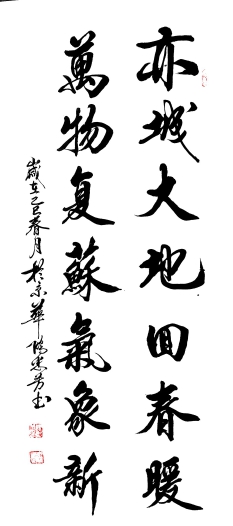 亦城大地回春暖
萬物复蘇氣象新
歲在己巳春月於京華陽忠芳书